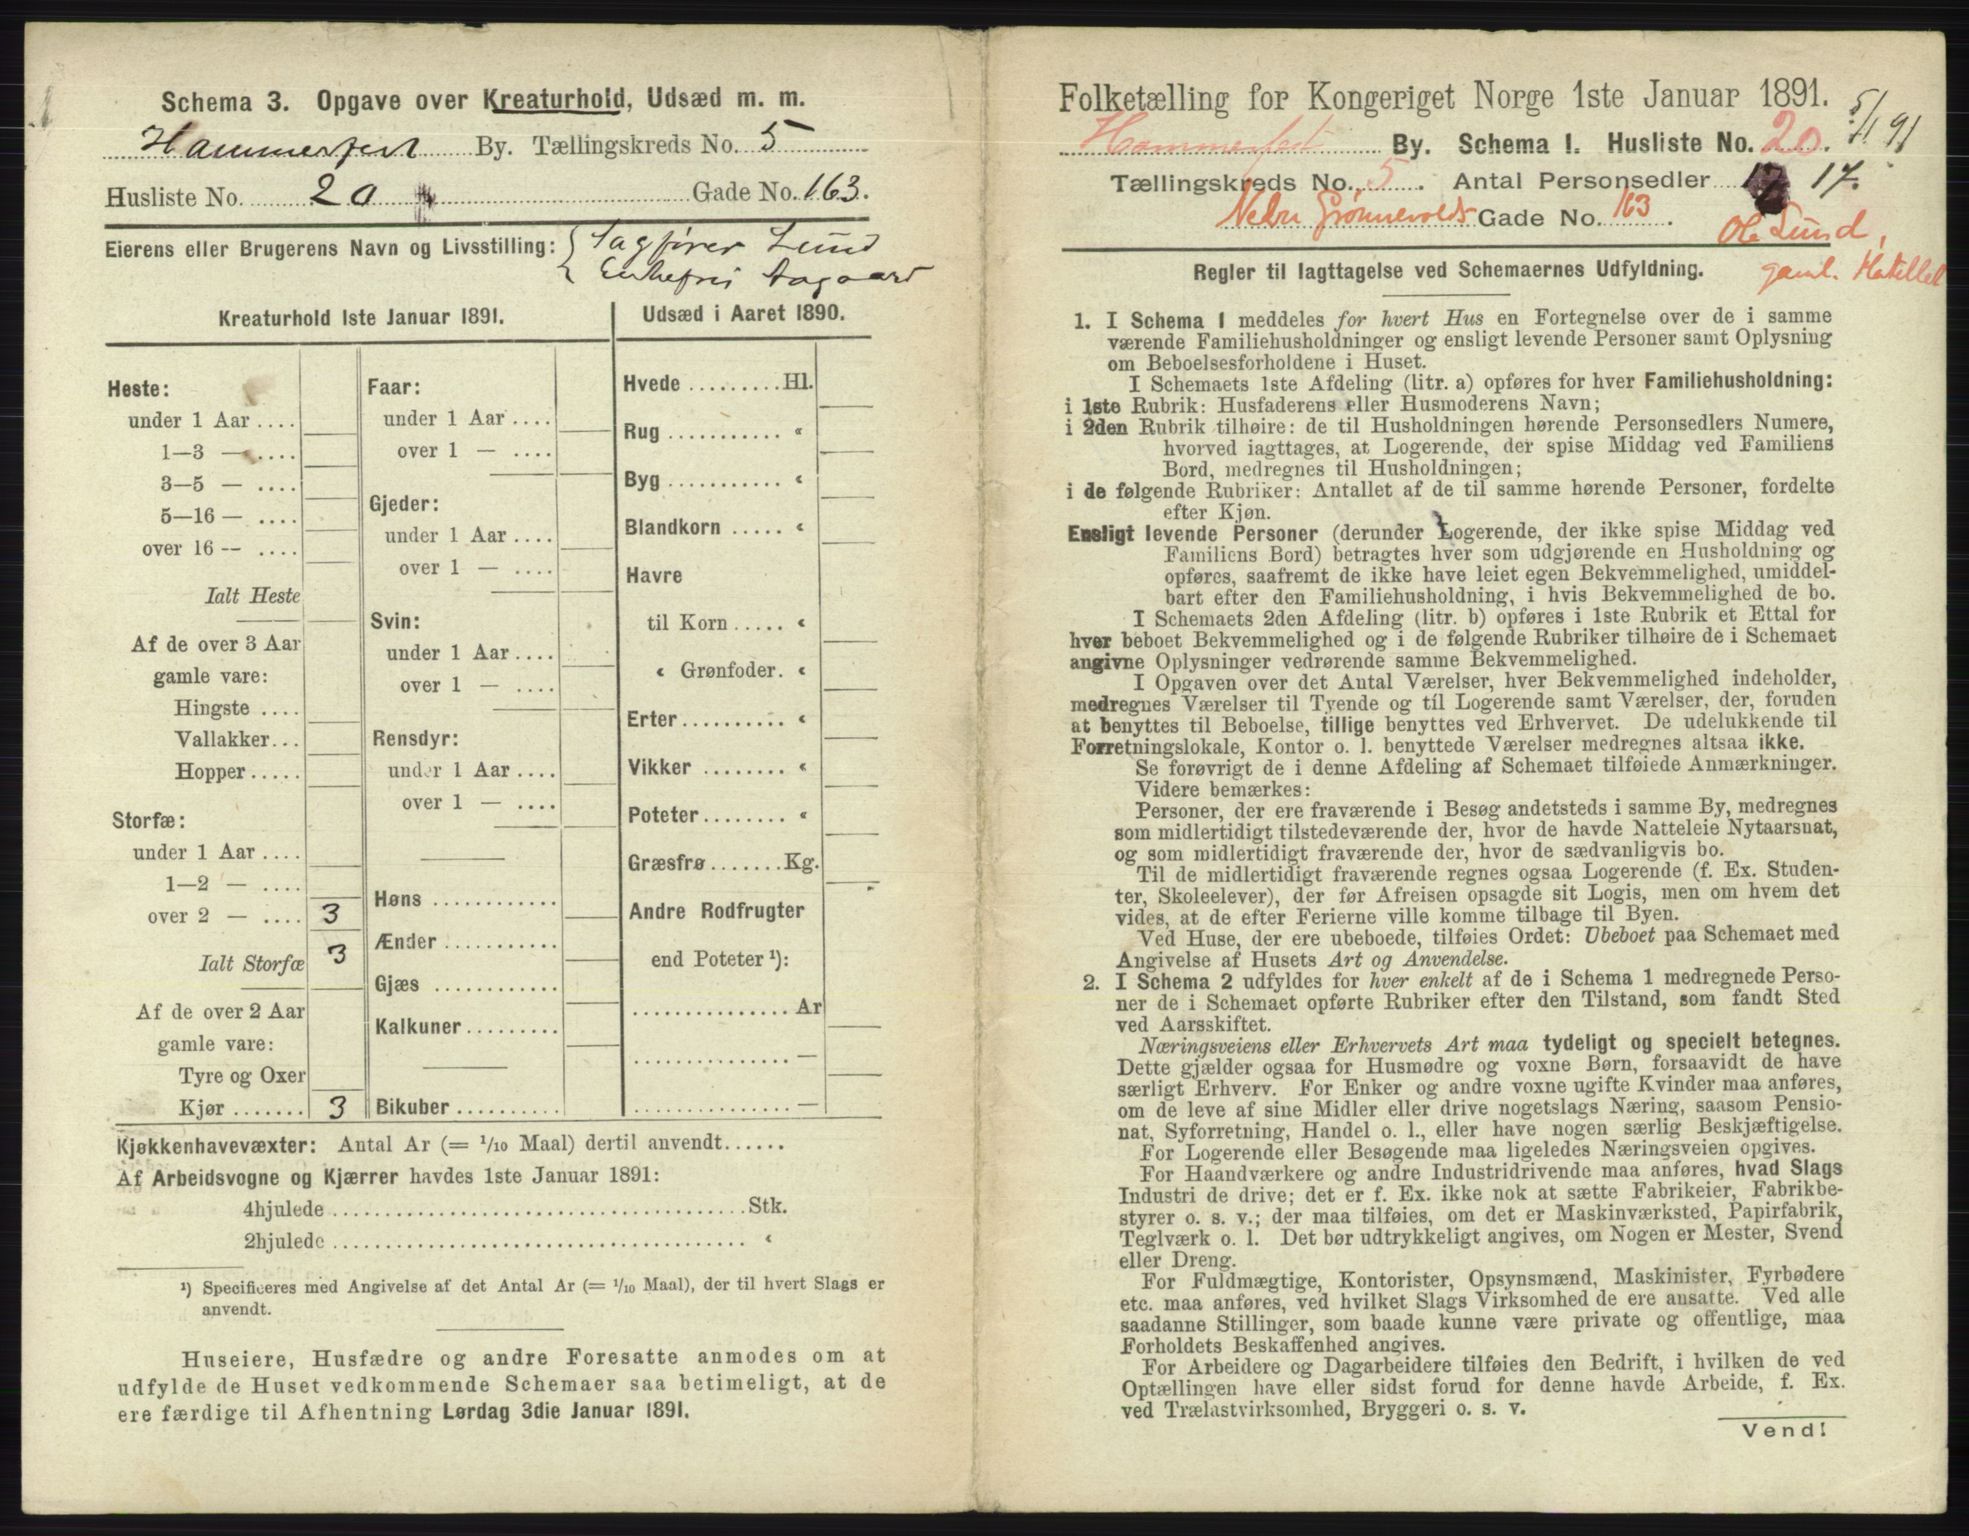 Schema 3. Opgave over Kreaturhold, Udsæd m. m.
Hammerfest By. Tællingskreds No. 5
Husliste No. 20 Gade No. 163.
Eierens eller Brugerens Navn og Livsstilling: { Sagfører Lund
Enkefru Aagaard
Kreaturhold 1ste Januar 1891.
Heste:
under 1 Aar ....
1—3 — ....
3—5 — ....
5—16 — ....
over 16 -- ....
Ialt Heste
Af de over 3 Aar
gamle vare:
Hingste ....
Vallakker...
Hopper.....
Storfæ:
under 1 Aar ....
1—2 — ....
over 2 — .... 3
Ialt Storfæ 3
Af de over 2 Aar
gamle vare:
Tyre og Oxer
Kjør ....... 3
Faar:
under 1 Aar ....
over 1 — ....
Gjeder:
under 1 Aar ....
over 1 — ....
Svin:
under 1 Aar ....
over 1 — ....
Rensdyr:
under 1 Aar ....
over 1 — ....
Høns ............
Ænder ...........
Gjæs ............
Kalkuner.........
Bikuber ..........
Udsæd i Aaret 1890.
Hvede .........Hl.
Rug ........... «
Byg ........... «
Blandkorn ..... «
Havre
til Korn ..... «
« Grønfoder. «
Erter ......... «
Vikker ........ «
Poteter........ «
Græsfrø .......Kg.
Andre Rodfrugter
end Poteter ¹):
...............Ar
...............—
...............—
Kjøkkenhavevæxter: Antal Ar (= 1/10 Maal) dertil anvendt......
Af Arbeidsvogne og Kjærrer havdes 1ste Januar 1891:
4hjulede .......................................Stk.
2hjulede ....................................... «
¹) Specificeres med Angivelse af det Antal Ar (= 1/10 Maal), der til hvert Slags er
anvendt.
Huseiere, Husfædre og andre Foresatte anmodes om at
udfylde de Huset vedkommende Schemaer saa betimeligt, at de
ere færdige til Afhentning Lørdag 3die Januar 1891.
Folketælling for Kongeriget Norge 1ste Januar 1891.
5/1 91
Hammerfest By. Schema 1. Husliste No. 20.
Tællingskreds No. 5. Antal Personsedler 17 17.
Nedre Grønnevolds Gade No. 163.
Ole Lund,
gaml.
Regler til Iagttagelse ved Schemaernes Udfyldning.
1. I Schema 1 meddeles for hvert Hus en Fortegnelse over de i samme
værende Familiehusholdninger og ensligt levende Personer samt Oplysning
om Beboelsesforholdene i Huset.
I Schemaets 1ste Afdeling (litr. a) opføres for hver Familiehusholdning:
i 1ste Rubrik: Husfaderens eller Husmoderens Navn;
i 2den Rubrik tilhøire: de til Husholdningen hørende Personsedlers Numere,
hvorved iagttages, at Logerende, der spise Middag ved Familiens
Bord, medregnes til Husholdningen;
i de følgende Rubriker: Antallet af de til samme hørende Personer, fordelte
efter Kjøn.
Ensligt levende Personer (derunder Logerende, der ikke spise Middag ved
Familiens Bord) betragtes hver som udgjørende en Husholdning og
opføres, saafremt de ikke have leiet egen Bekvemmelighed, umiddel-
bart efter den Familiehusholdning, i hvis Bekvemmelighed de bo.
I Schemaets 2den Afdeling (litr. b) opføres i 1ste Rubrik et Ettal for
hver beboet Bekvemmelighed og i de følgende Rubriker tilhøire de i Schemaet
angivne Oplysninger vedrørende samme Bekvemmelighed.
I Opgaven over det Antal Værelser, hver Bekvemmelighed indeholder,
medregnes Værelser til Tyende og til Logerende samt Værelser, der, foruden
at benyttes til Beboelse, tillige benyttes ved Erhvervet. De udelukkende til
Forretningslokale, Kontor o. l. benyttede Værelser medregnes altsaa ikke.
Se forøvrigt de i denne Afdeling af Schemaet tilføiede Anmærkninger.
Videre bemærkes:
Personer, der ere fraværende i Besøg andetsteds i samme By, medregnes
som midlertidigt tilstedeværende der, hvor de havde Natteleie Nytaarsnat,
og som midlertidigt fraværende der, hvor de sædvanligvis bo.
Til de midlertidigt fraværende regnes ogsaa Logerende (f. Ex. Studen-
ter, Skoleelever), der før Afreisen opsagde sit Logis, men om hvem det
vides, at de efter Ferierne ville komme tilbage til Byen.
Ved Huse, der ere ubeboede, tilføies Ordet: Ubeboet paa Schemaet med
Angivelse af Husets Art og Anvendelse.
2. I Schema 2 udfyldes for hver enkelt af de i Schema 1 medregnede Perso-
ner de i Schemaet opførte Rubriker efter den Tilstand, som fandt Sted
ved Aarsskiftet.
Næringsveiens eller Erhvervets Art maa tydeligt og specielt betegnes.
Dette gjælder ogsaa for Husmødre og voxne Børn, forsaavidt de have
særligt Erhverv. For Enker og andre voxne ugifte Kvinder maa anføres,
om de leve af sine Midler eller drive nogetslags Næring, saasom Pensio-
nat, Syforretning, Handel o. l., eller have nogen særlig Beskjæftigelse.
For Logerende eller Besøgende maa ligeledes Næringsveien opgives.
For Haandværkere og andre Industridrivende maa anføres, hvad Slags
Industri de drive; det er f. Ex. ikke nok at sætte Fabrikeier, Fabrikbe-
styrer o. s. v.; der maa tilføies, om det er Maskinværksted, Papirfabrik,
Teglværk o. l. Det bør udtrykkeligt angives, om Nogen er Mester, Svend
eller Dreng.
For Fuldmægtige, Kontorister, Opsynsmænd, Maskinister, Fyrbødere
etc. maa anføres, ved hvilket Slags Virksomhed de ere ansatte. Ved alle
saadanne Stillinger, som baade kunne være private og offentlige, maa
Forholdets Beskaffenhed angives.
For Arbeidere og Dagarbeidere tilføies den Bedrift, i hvilken de ved
Optællingen have eller sidst forud for denne havde Arbeide, f. Ex.
ved Trælastvirksomhed, Bryggeri o. s. v.
Vend!